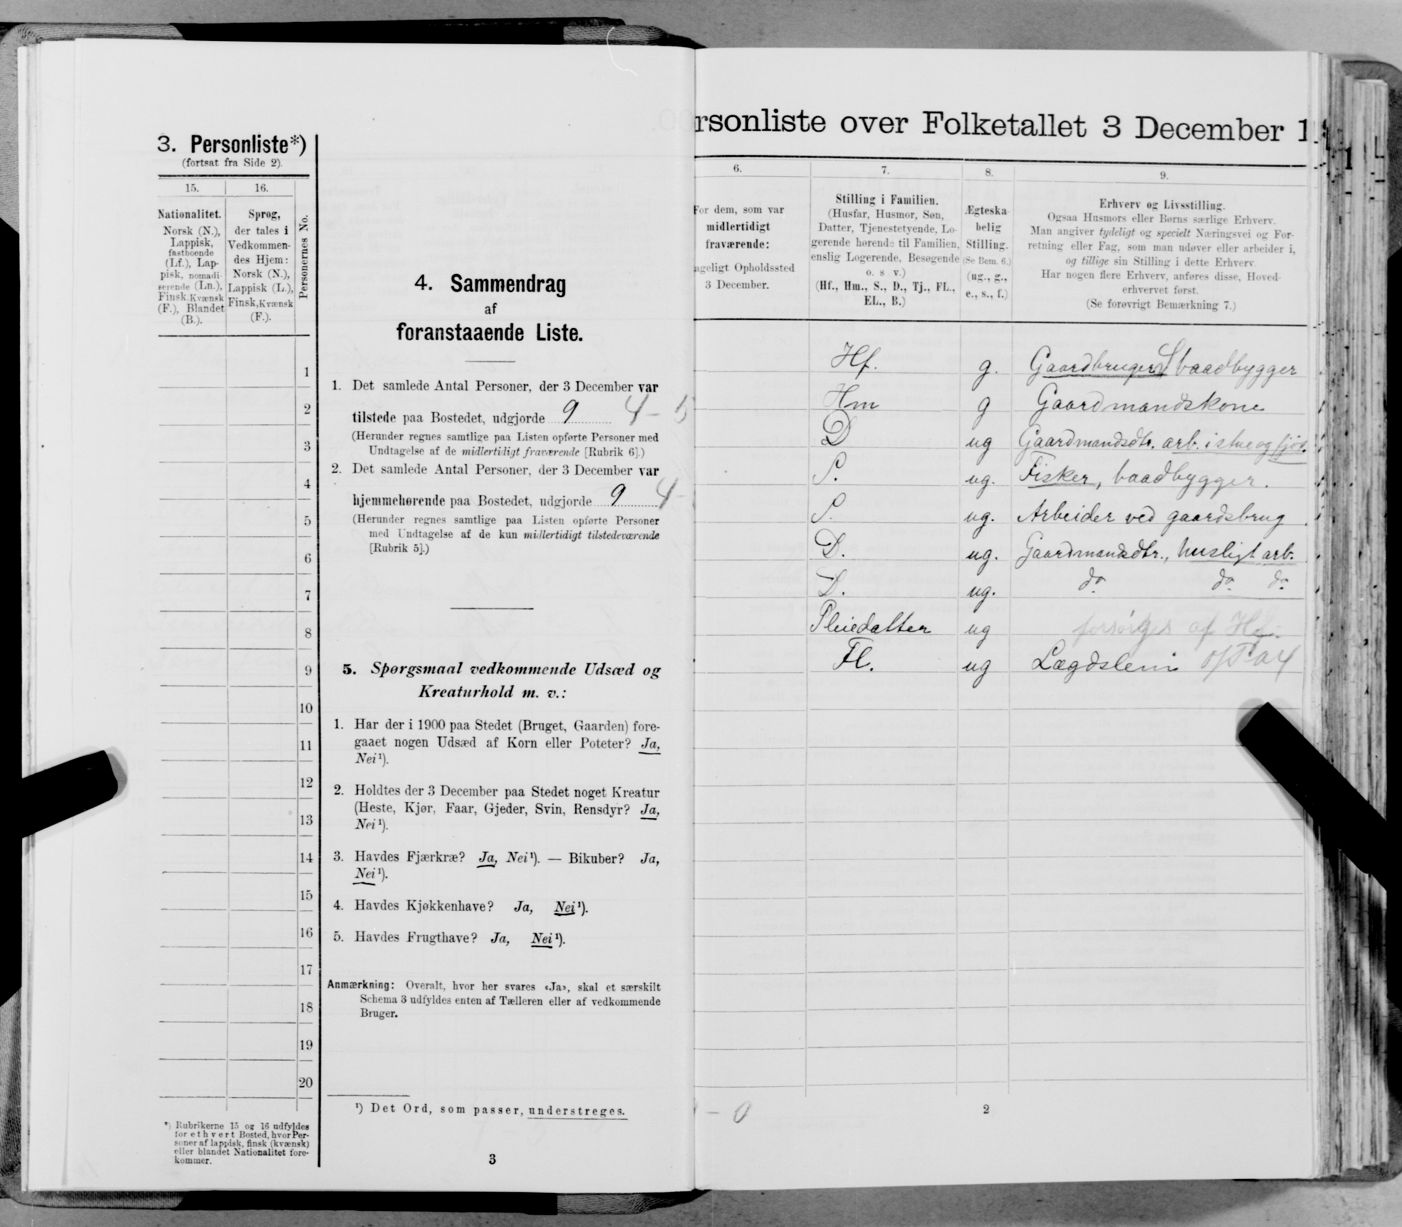 3. Personliste*)
(fortsat fra Side 2).
15.
16.
Nationalitet.
Norsk (N.),
Lappisk,
fastboende
(Lf.), Lap-
pisk, nomadi-
serende (Ln.),
Finsk, Kvænsk
(F.), Blandet
(B.).
Sprog,
der tales i
Vedkommen-
des Hjem:
Norsk (N.),
Lappisk (L.),
Finsk, Kvænsk
(F.).
Personernes No.
1
2
3
4
5
6
7
8
9
10
11
12
13
14
15
16
17
18
19
20
*) Rubrikerne 15 og 16 udfyldes
for ethvert Bosted, hvor Per-
soner af lappisk, finsk (kvænsk)
eller blandet Nationalitet fore-
kommer.
4. Sammendrag
af
foranstaaende Liste.
1. Det samlede Antal Personer, der 3 December var
tilstede paa Bostedet, udgjorde 9 4-5
(Herunder regnes samtlige paa Listen opførte Personer med
Undtagelse af de midlertidigt fraværende [Rubrik 6].)
2. Det samlede Antal Personer, der 3 December var
hjemmehørende paa Bostedet, udgjorde 9 4-
(Herunder regnes samtlige paa Listen opførte Personer
med Undtagelse af de kun midlertidigt tilstedeværende
[Rubrik 5].)
5. Spørgsmaal vedkommende Udsæd og
Kreaturhold m. v.:
1. Har der i 1900 paa Stedet (Bruget, Gaarden) fore-
gaaet nogen Udsæd af Korn eller Poteter? Ja,
Nei¹).
2. Holdtes der 3 December paa Stedet noget Kreatur
(Heste, Kjør, Faar, Gjeder, Svin, Rensdyr? Ja,
Nei¹).
3. Havdes Fjærkræ? Ja, Nei¹). — Bikuber? Ja,
Nei¹).
4. Havdes Kjøkkenhave? Ja, Nei¹).
5. Havdes Frugthave? Ja, Nei¹).
Anmærkning: Overalt, hvor her svares «Ja», skal et særskilt
Schema 3 udfyldes enten af Tælleren eller af vedkommende
Bruger.
¹) Det Ord, som passer, understreges.
3
rsonliste over Folketallet 3 December 1
6.
7.
8.
9.
For dem, som var
midlertidigt
fraværende:
ageligt Opholdssted
3 December.
Stilling i Familien.
(Husfar, Husmor, Søn,
Datter, Tjenestetyende, Lo-
gerende hørende til Familien,
enslig Logerende, Besøgende
o. s v.)
(Hf., Hm., S., D., Tj., FL.,
EL., B.)
Ægteska
belig
Stilling.
(Se Bem. 6.)
(ug., g.,
e., s., f.)
Erhverv og Livsstilling.
Ogsaa Husmors eller Børns særlige Erhverv.
Man angiver tydeligt og specielt Næringsvei og For-
retning eller Fag, som man udøver eller arbeider i,
og tillige sin Stilling i dette Erhverv.
Har nogen flere Erhverv, anføres disse, Hoved-
erhvervet først.
(Se forøvrigt Bemærkning 7.)
Hf. g. Gaardbruger S baadbygger
Hm g Gaardmandskone
D ug Gaardmandsdtr. arb. i stue og fjøs.
S. ug. Fisker, baadbygger.
S. ug. Arbeider ved gaardsbrug
D. ug. Gaardmandsdtr., husligt arb.
D. ug. do do do
Pleiedatter ug forsørges af Hf.
Fl. ug Lægdslem
- 0
2